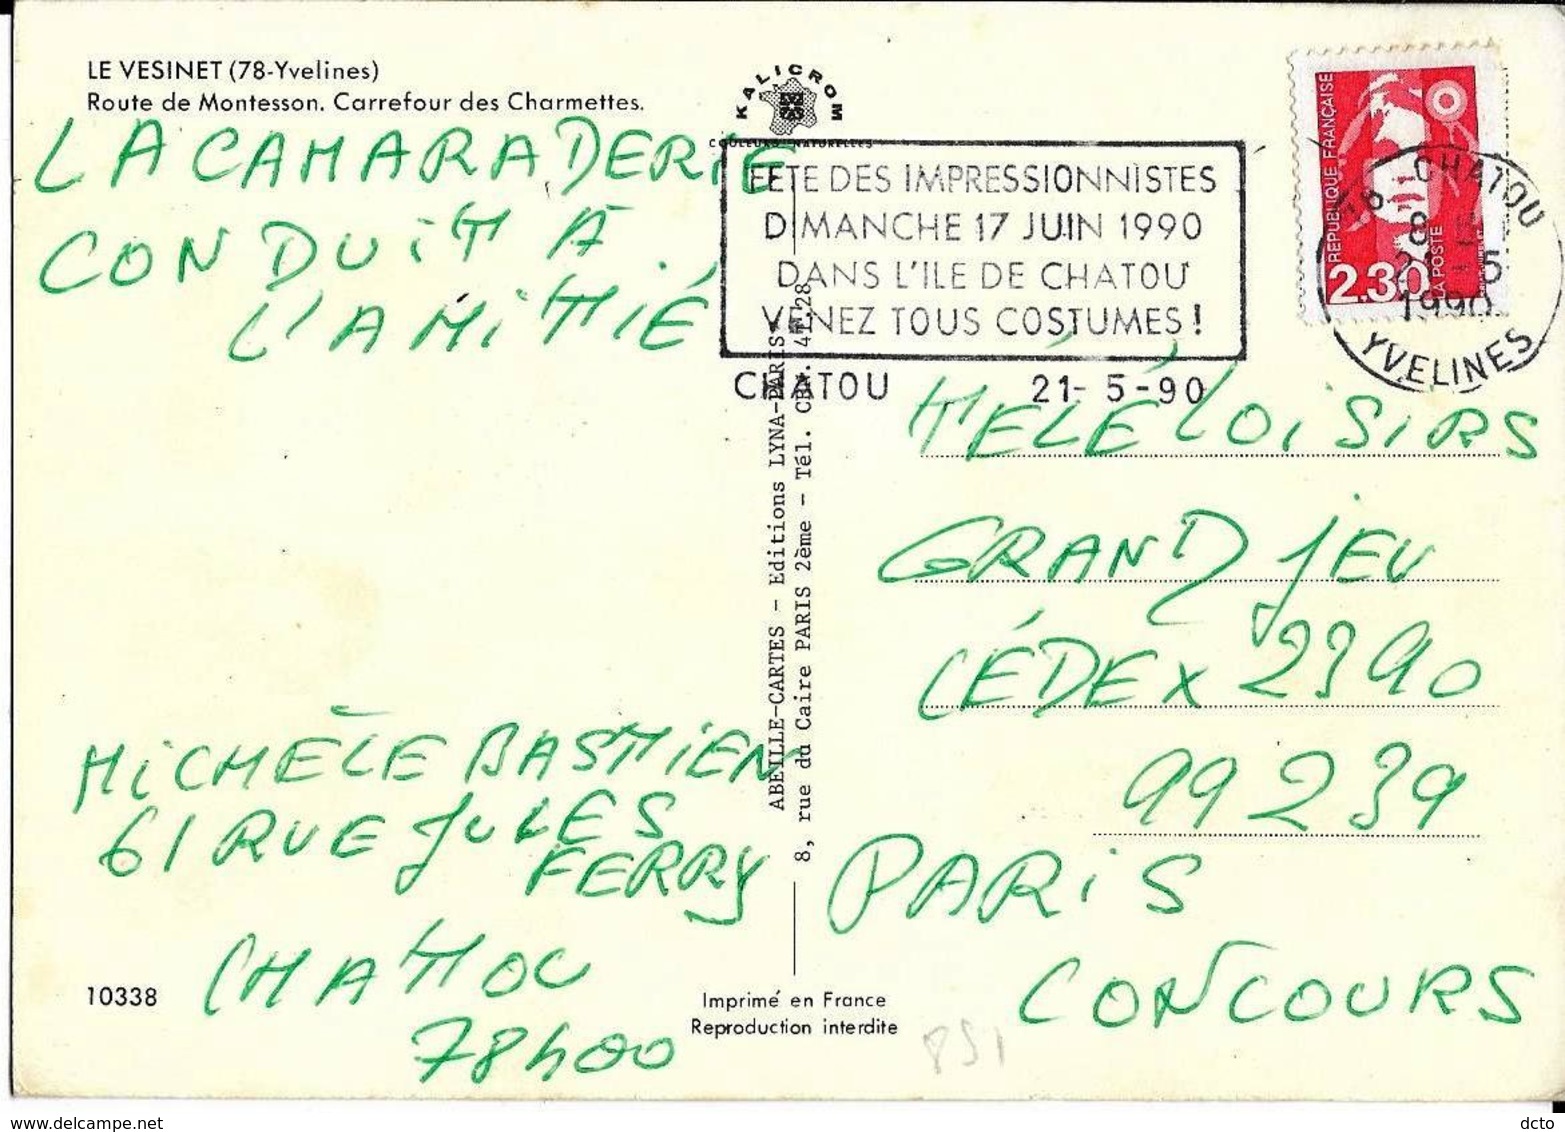 LE VESINET (78-Yvelines)
Route de Montesson. Carrefour des Charmettes.
KALICROM
COULEURS NATURELLES
LA CAMARADERIE
CONDUIT À
L'AMITIÉ
FETE DES IMPRESSIONNISTES
DIMANCHE 17 JUIN 1990
DANS L'ILE DE CHATOU
VENEZ TOUS COSTUMES !
CHATOU 21- 5 -90
REPUBLIQUE FRANÇAISE
2.30 LA POSTE
78 CHATOU
1990
YVELINES
ABEILLE-CARTES - Editions LYNA-PARIS
8, rue du Caire PARIS 2ème - Tél. 41.28
TÉLÉ LOISIRS
GRAND JEU
CÉDEX 2390
99 239
PARIS
CONCOURS
MICHÈLE BASTIEN
61 RUE JULES
FERRY
CHATOU
78400
10338
Imprimé en France
Reproduction interdite
PSI
dcto